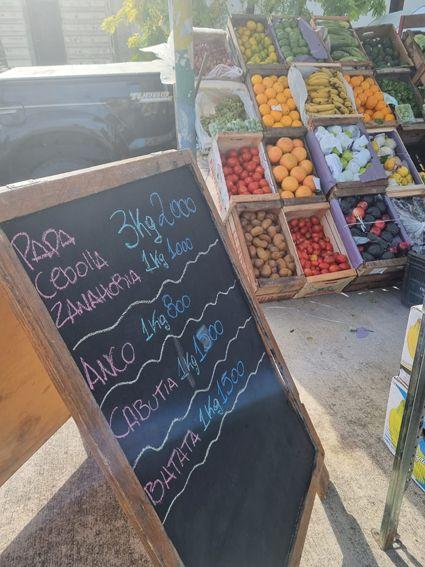 PAPA
Cebolla 3Kg 2000
ZANAHORIA 1Kg 1000
ANCO 1Kg 800
CABUTIA 1Kg 1500
BATATA 1Kg 1500